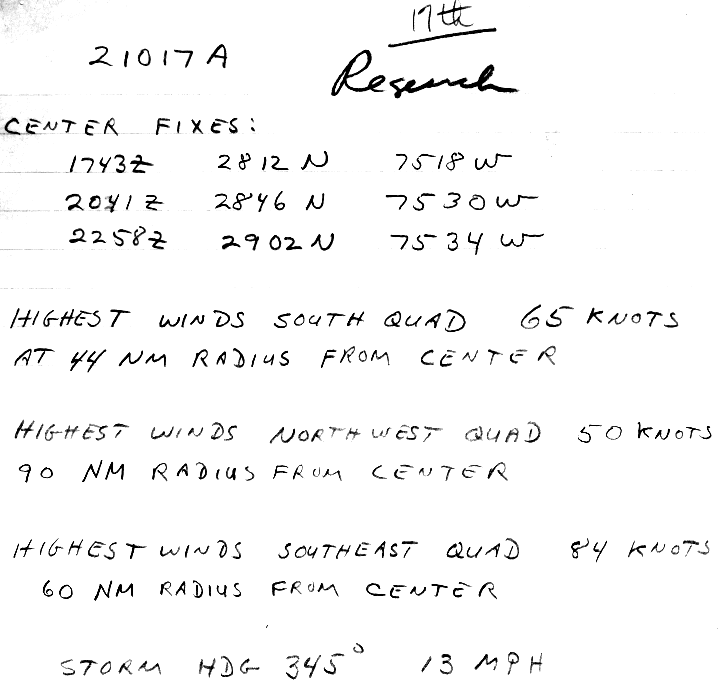 17th
21017A
Research
CENTER FIXES:
1743Z 2812 N 7518 W
2041Z 2846 N 7530 W
2258Z 2902 N 7534 W
HIGHEST WINDS SOUTH QUAD 65 KNOTS
AT 44 NM RADIUS FROM CENTER
HIGHEST WINDS NORTHWEST QUAD 50 KNOTS
90 NM RADIUS FROM CENTER
HIGHEST WINDS SOUTHEAST QUAD 84 KNOTS
60 NM RADIUS FROM CENTER
STORM HDG 345° 13 MPH